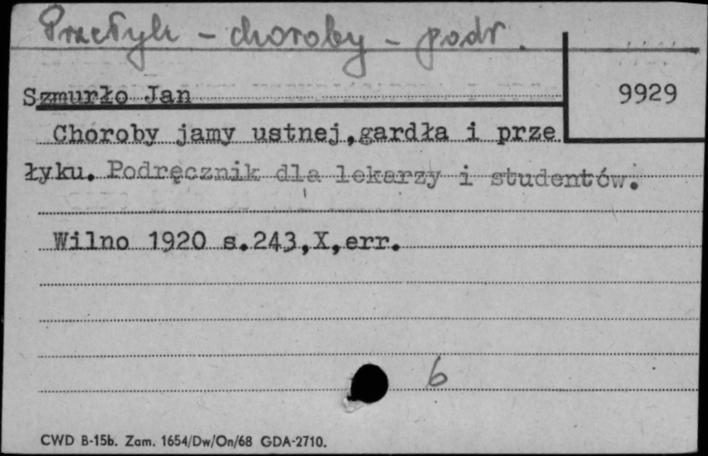 Przełyk - choroby - podr.
9929
Szmurło Jan
Choroby jamy ustnej,gardła i prze
łyku. Podręcznik dla lekarzy i studentów.
Wilno 1920 s.243,X,err.
6
CWD B-15b. Zam. 1654/Dw/On/68 GDA-2710.